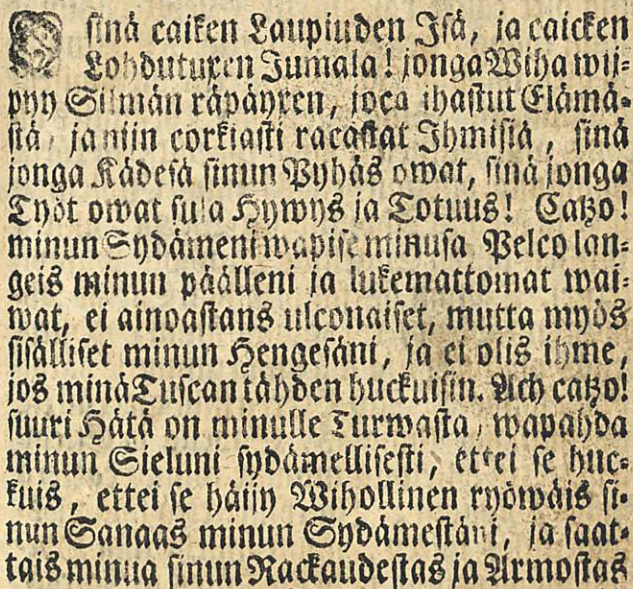 O sinä caiken Laupiuden Isä, ja caicken
Lohdutuxen Jumala! jonga Wiha wij-
pyy Silmän räpäyxen, joca ihastut Elämä-
stä, ja nijn corkiasti racastat Ihmisiä, sinä
jonga Kädesä sinun Pyhäs owat, sinä jonga
Työt owat sula Hywys ja Totuus! Catzo!
minun Sydämeni wapise minusa Pelco lan-
geis minun päälleni ja lukemattomat wai-
wat, ei ainoastans ulconaiset, mutta myös
sisälliset minun Hengesäni, ja ei olis ihme,
jos minä Tuscan tähden huckuisin. Ach catzo!
suuri Hätä on minulle Turwasta, wapahda
minun Sieluni sydämellisesti, ettei se huc-
kuis, ettei se häijy Wihollinen ryöwäis si-
nun Sanaas minun Sydämestäni, ja saat-
tais minua sinun Rackaudestas ja Armostas